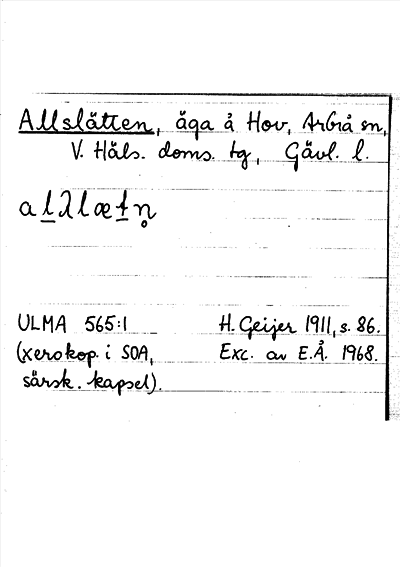 Allslätten, äga å Hov, Arbrå sn,
V. Häls. doms. tg, Gävl. l.
al̲λlæt̲n̥
ULMA 565:1 H. Geijer 1911, s. 86.
(xerokop. i SOA, Exc. av E.Å. 1968.
särsk. kapsel).